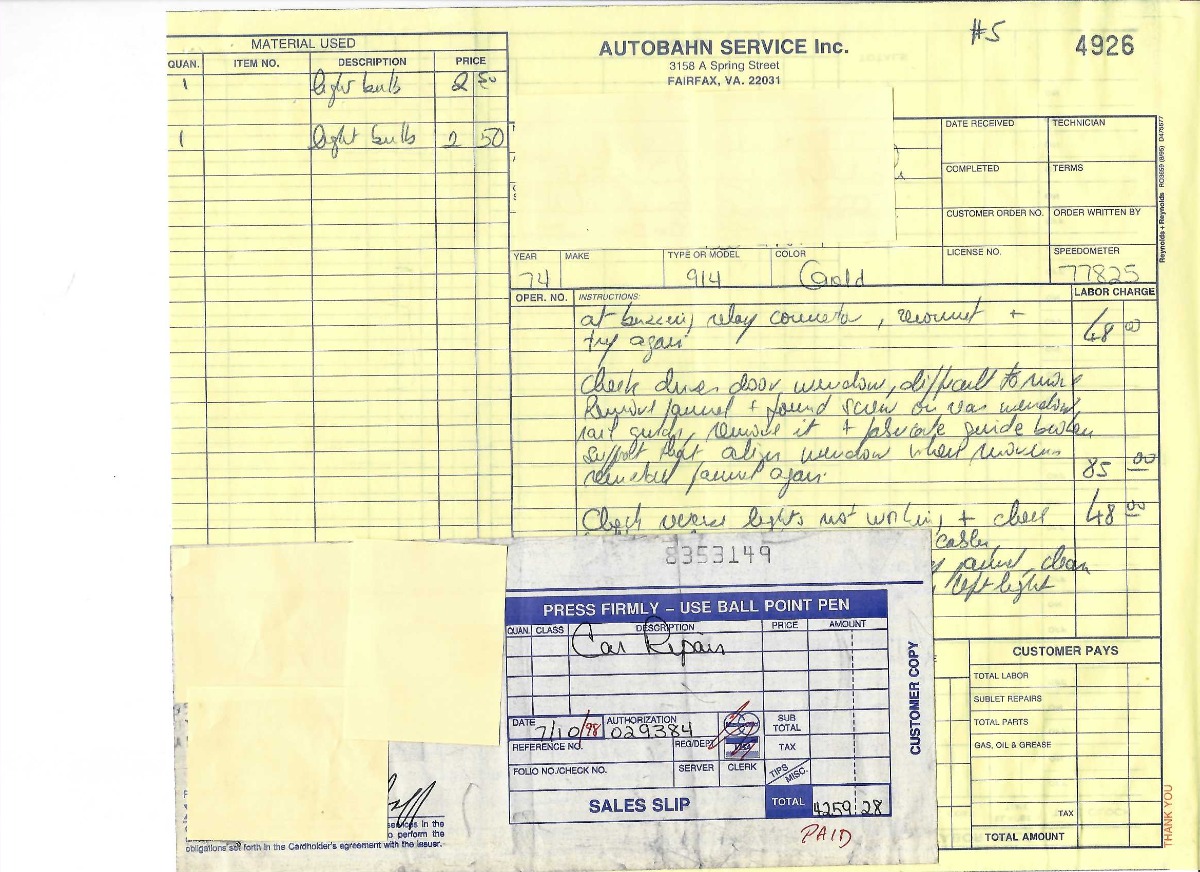 #5
4926
AUTOBAHN SERVICE Inc.
3158 A Spring Street
FAIRFAX, VA. 22031
MATERIAL USED
QUAN. ITEM NO. DESCRIPTION PRICE
1 light bulb 2 50
1 light bulb 2 50
DATE RECEIVED TECHNICIAN
COMPLETED TERMS
CUSTOMER ORDER NO. ORDER WRITTEN BY
YEAR MAKE TYPE OR MODEL COLOR LICENSE NO. SPEEDOMETER
74 914 Gold 77825
OPER. NO. INSTRUCTIONS: LABOR CHARGE
at relay , +
try again 48 00
Check door window, difficult to move
Remove + found screw on window
remove it + guide broken
support that align window when
again 85 00
Check reverse lights not working + check 48 00
clean
left light
Reynolds + Reynolds
8353149
PRESS FIRMLY – USE BALL POINT PEN
QUAN. CLASS DESCRIPTION PRICE AMOUNT
Car Repair
DATE 7/10/98 AUTHORIZATION 029384 SUB TOTAL
REFERENCE NO. REG/DEPT. VISA TAX
FOLIO NO./CHECK NO. SERVER CLERK TIPS MISC.
SALES SLIP TOTAL 4259 28
PAID
CUSTOMER COPY
services in the
to perform the
obligations set forth in the Cardholder's agreement with the issuer.
CUSTOMER PAYS
TOTAL LABOR
SUBLET REPAIRS
TOTAL PARTS
GAS, OIL & GREASE
TAX
TOTAL AMOUNT
THANK YOU